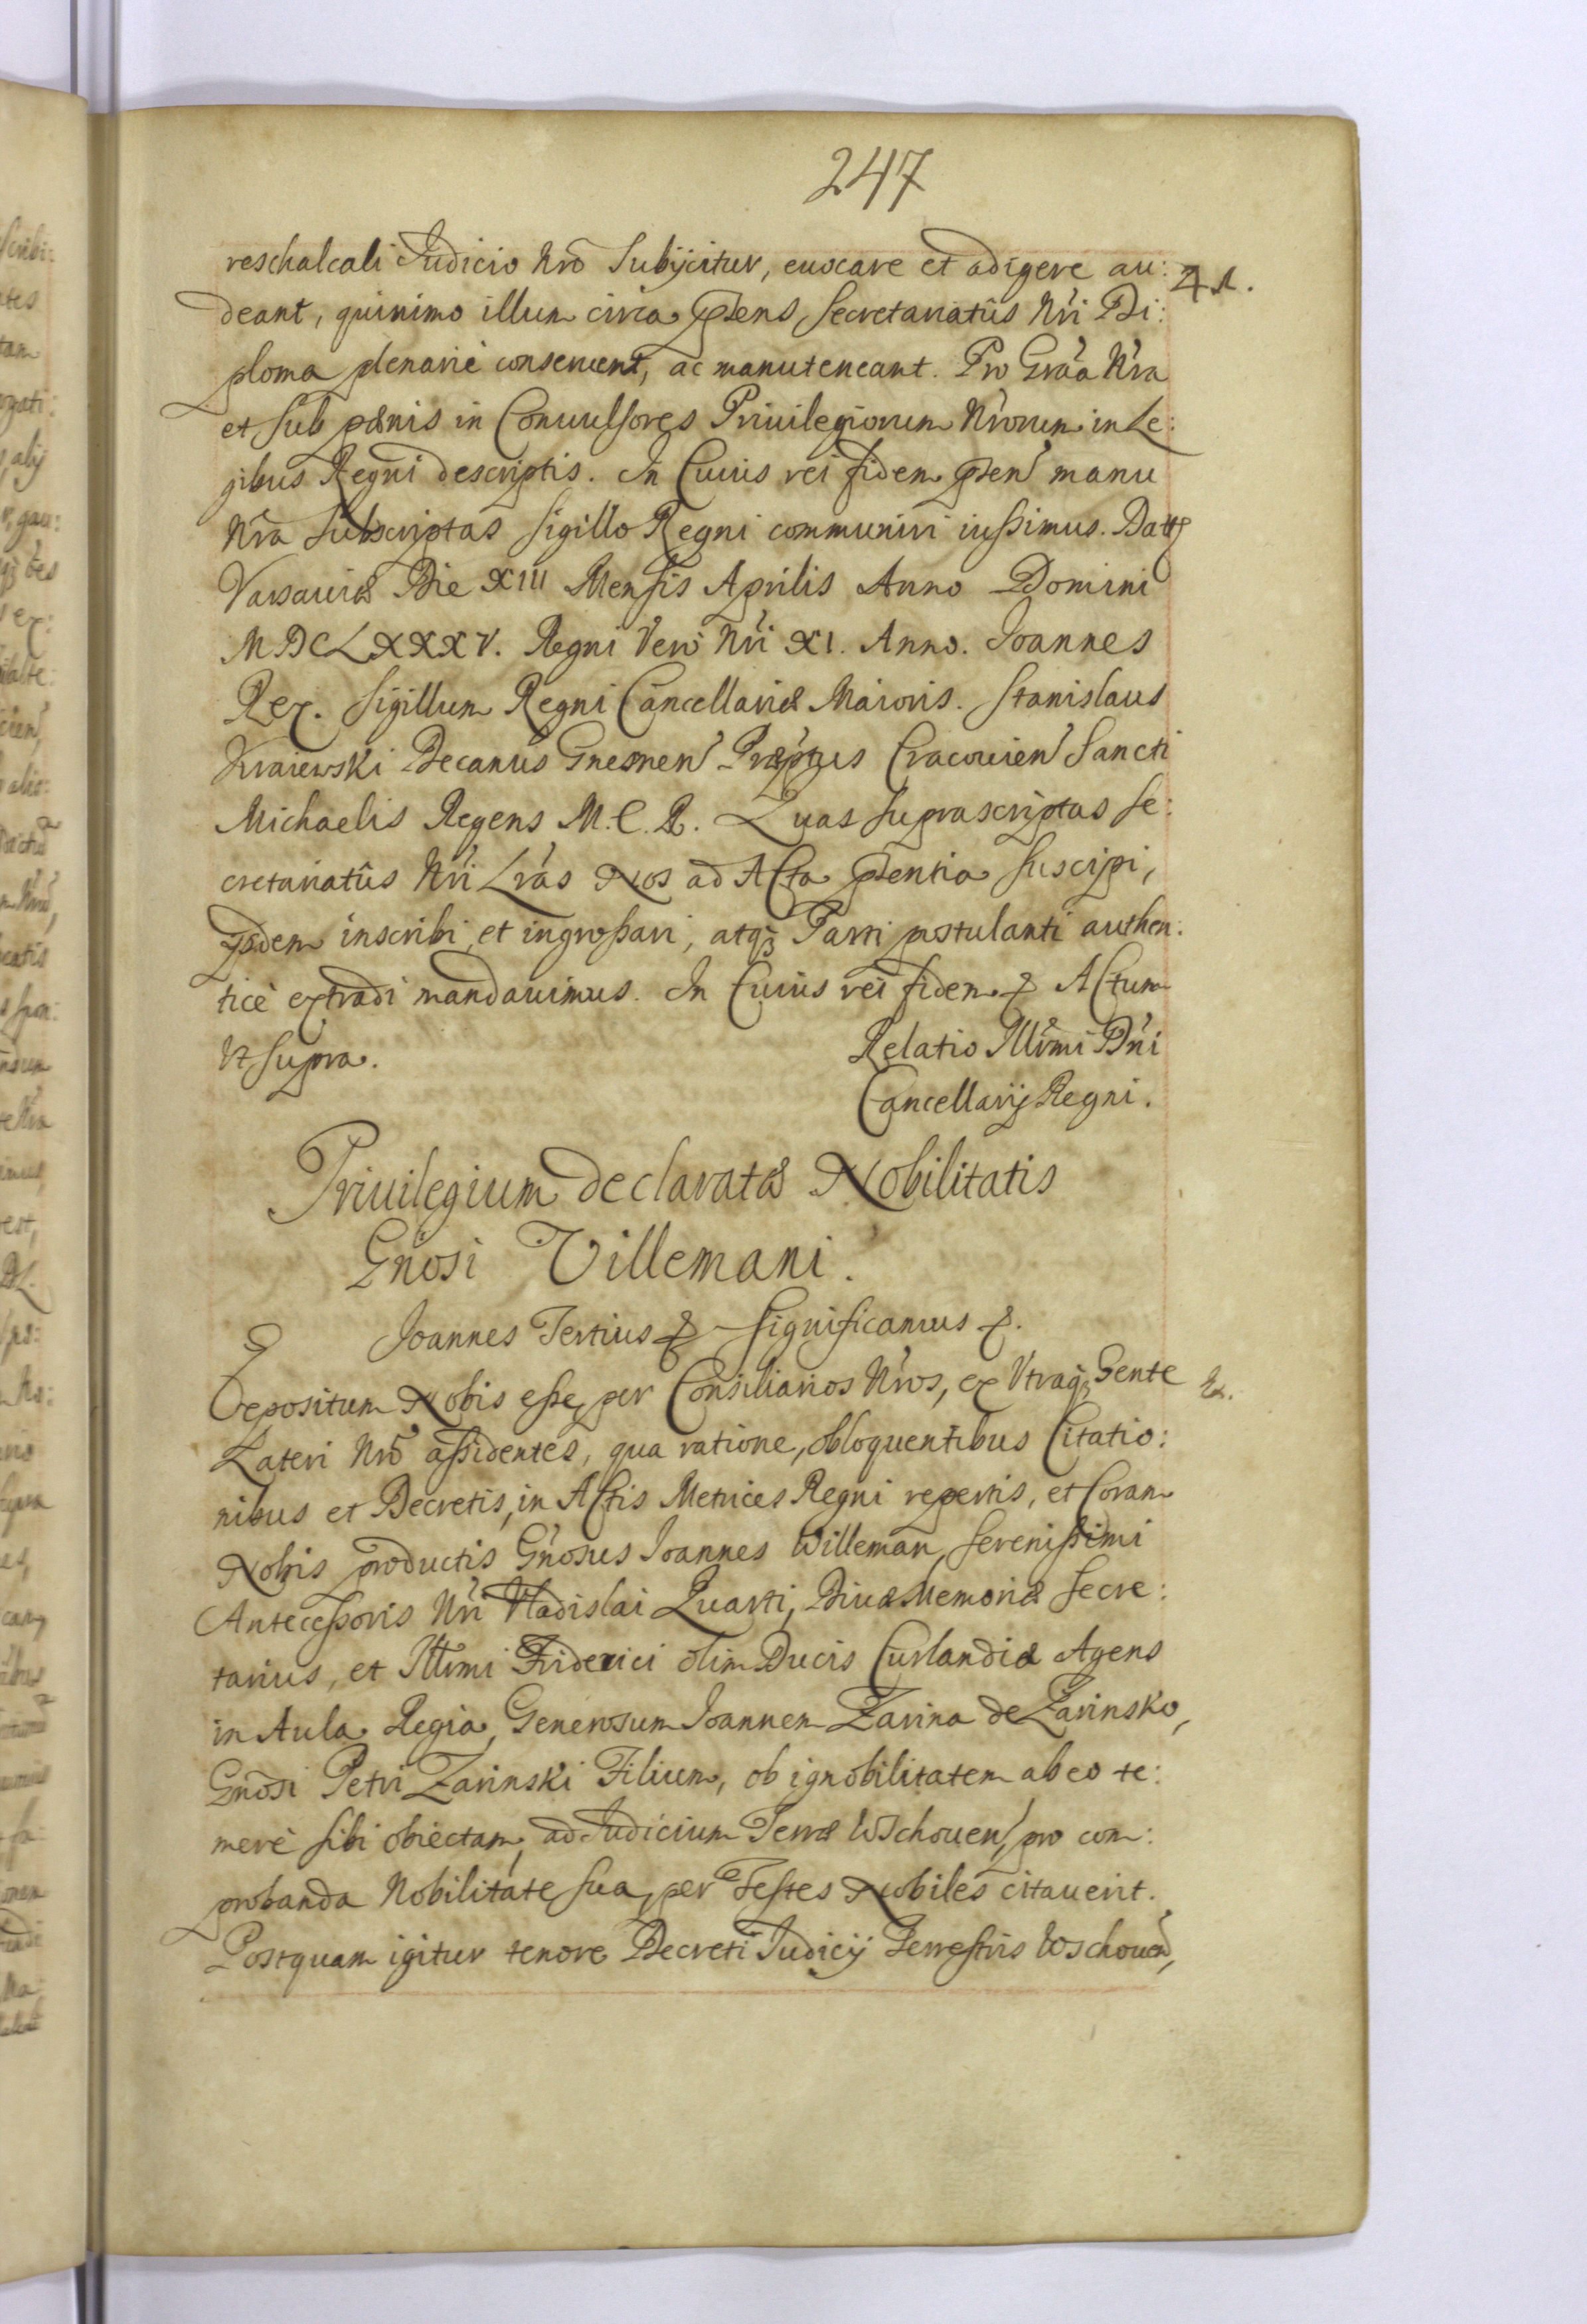 247
reschalcali Judicio Nrõ Subijcitur, euocare et adigere au:
deant, quinimo illum circa pñens Secretariatûs Nri Di:
ploma plenariè conseruent, ac manuteneant. Pro Graa Nra
et sub pænis in Conuulsores Priuilegiorum Nrorum in Le:
gibus Regni descriptis. In Cuius rei fidem pñen manu
Nra Subscriptas Sigillo Regni communiri iussimus. Datt
Varsauiæ Die XIII Mensis Aprilis Anno Domini
MDCLXXXV. Regni Verò Nri XI. Anno. Joannes
Rex. Sigillum Regni Cancellariæ Maioris. Stanislaus
Kraiewski Decanus Gnesnen Præptus Cracouien Sancti
Michaelis Regens M.C.R. Quas Suprascriptas Se:
cretariatûs Nri Lras Nos ad Acta pñentia suscipi,
ijsdem inscribi et ingrossari, atq3 Parti postulanti authen:
ticè extradi mandauimus. In Cuius rei fidem & Actum
Vt supra.
Relatio Illrmi Dni
Cancellarij Regni.
Priuilegium declaratæ Nobilitatis
Gnosi Villemani.
Joannes Tertius & Significamus &.
Expositum Nobis esse, per Consiliarios Nros, ex Vtraq3 Gente
Lateri Nrõ assidentes, qua ratione, obloquentibus Citatio:
nibus et Decretis, in Actis Metrices Regni repertis, et Coram
Nobis productis Gnosus Joannes Willeman, Serenissimi
Antecessoris Nri Vladislai Quarti, Diuæ Memoriæ Secre:
tarius, et Illrmi Friderici olim Ducis Curlandiæ Agens
in Aula Regia, Generosum Joannem Zarina de Zarinsko,
Gnosi Petri Zarinski Filium, ob ignobilitatem ab eo te:
merè sibi obiectam, ad Judicium Terræ Wschouen, pro com:
probanda Nobilitate sua, per Testes Nobiles citauerit.
Postquam igitur tenore Decreti Judicij Terrestris Wschouen,